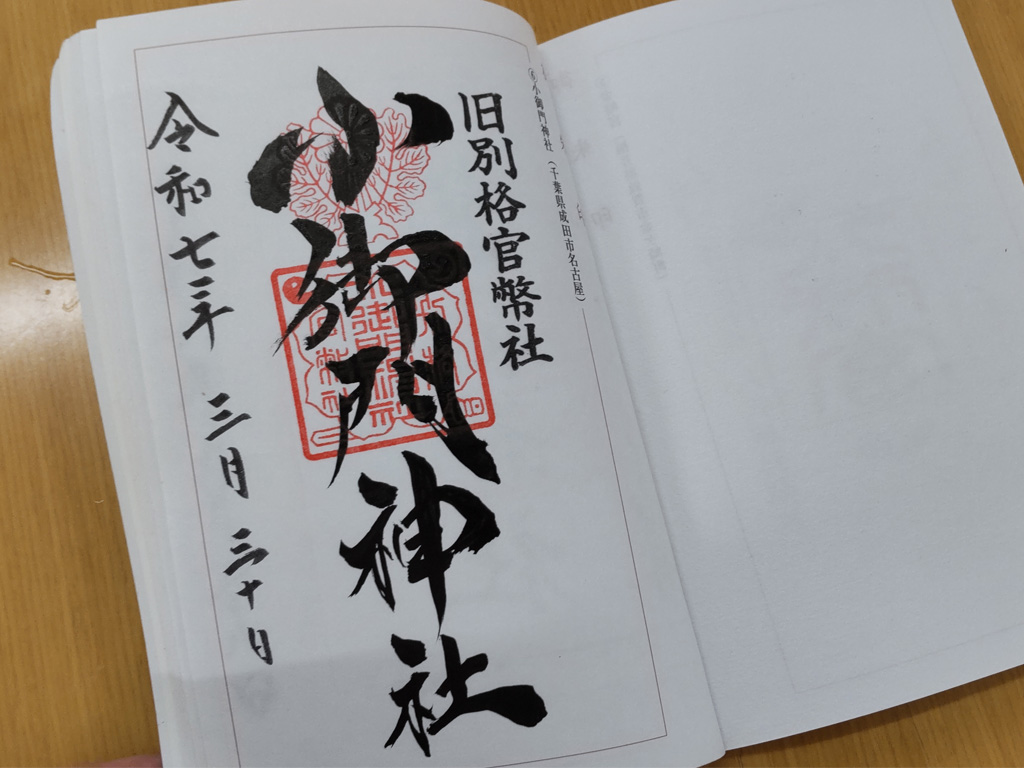 小御門神社（千葉県成田市名古屋）
旧別格官幣社
小御門神社
令和七年 三月 三十日